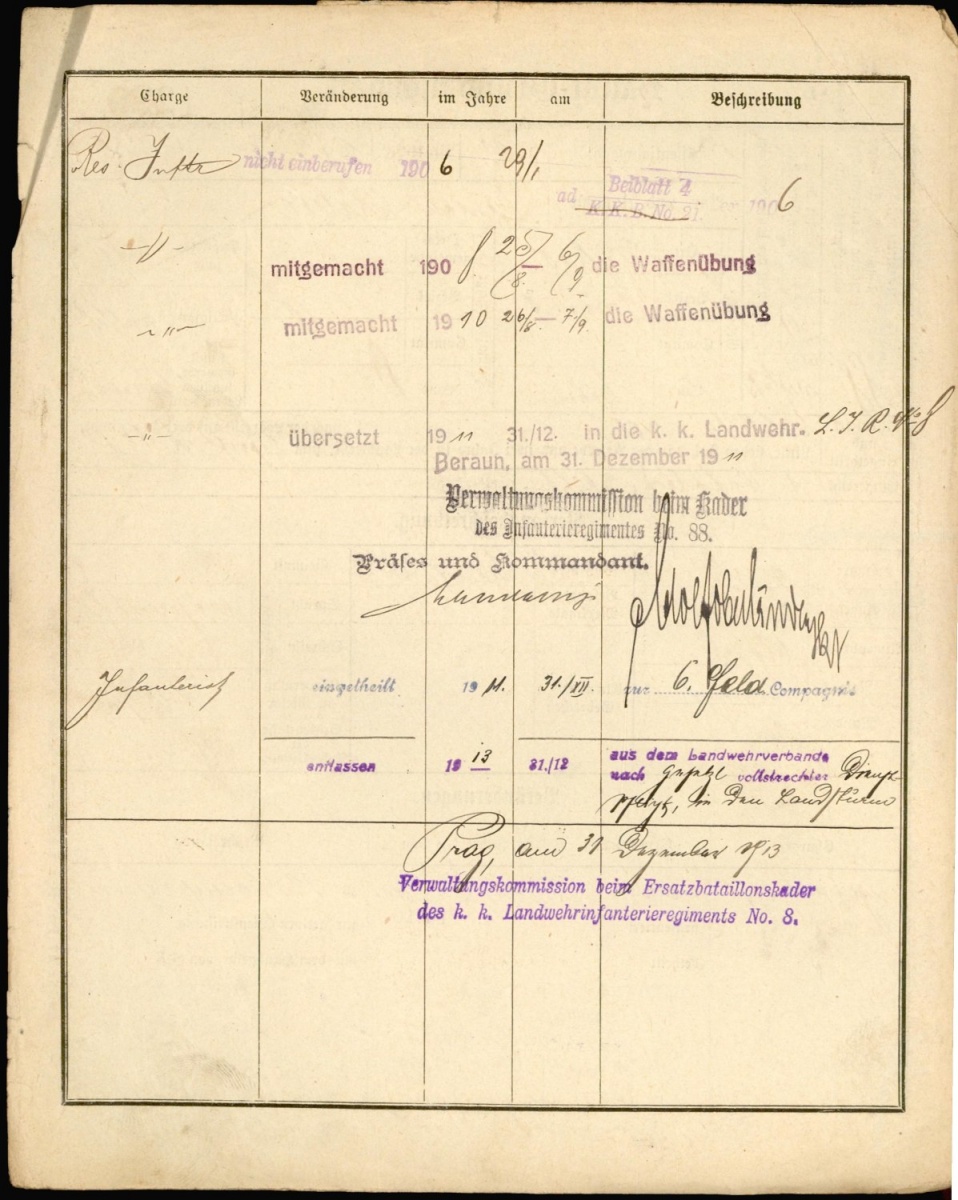 Charge Veränderung im Jahre am Beschreibung
Res. Inftr nicht einberufen 1906 29/1
Beiblatt 4
ad K. K. B. No. 21. er 1906
-"- mitgemacht 1908 25/8 — 6/9 die Waffenübung
-"- mitgemacht 1910 26/8 — 7/9. die Waffenübung
-"- übersetzt 1911 31./12. in die k. k. Landwehr. L. I. R. No 8
Beraun, am 31. Dezember 1911
Verwaltungskommission beim Kader
des Infanterieregimentes No. 88.
Präses und Kommandant.
Infanterist eingetheilt 1911. 31./XII. zur 6. Feld Compagnie
entlassen 1913 31./12 aus dem Landwehrverbande
nach Gesetzl vollstreckter Dienst-
pflicht, in den Landsturm
Prag, am 31 Dezember 1913
Verwaltungskommission beim Ersatzbataillonskader
des k. k. Landwehrinfanterieregiments No. 8.